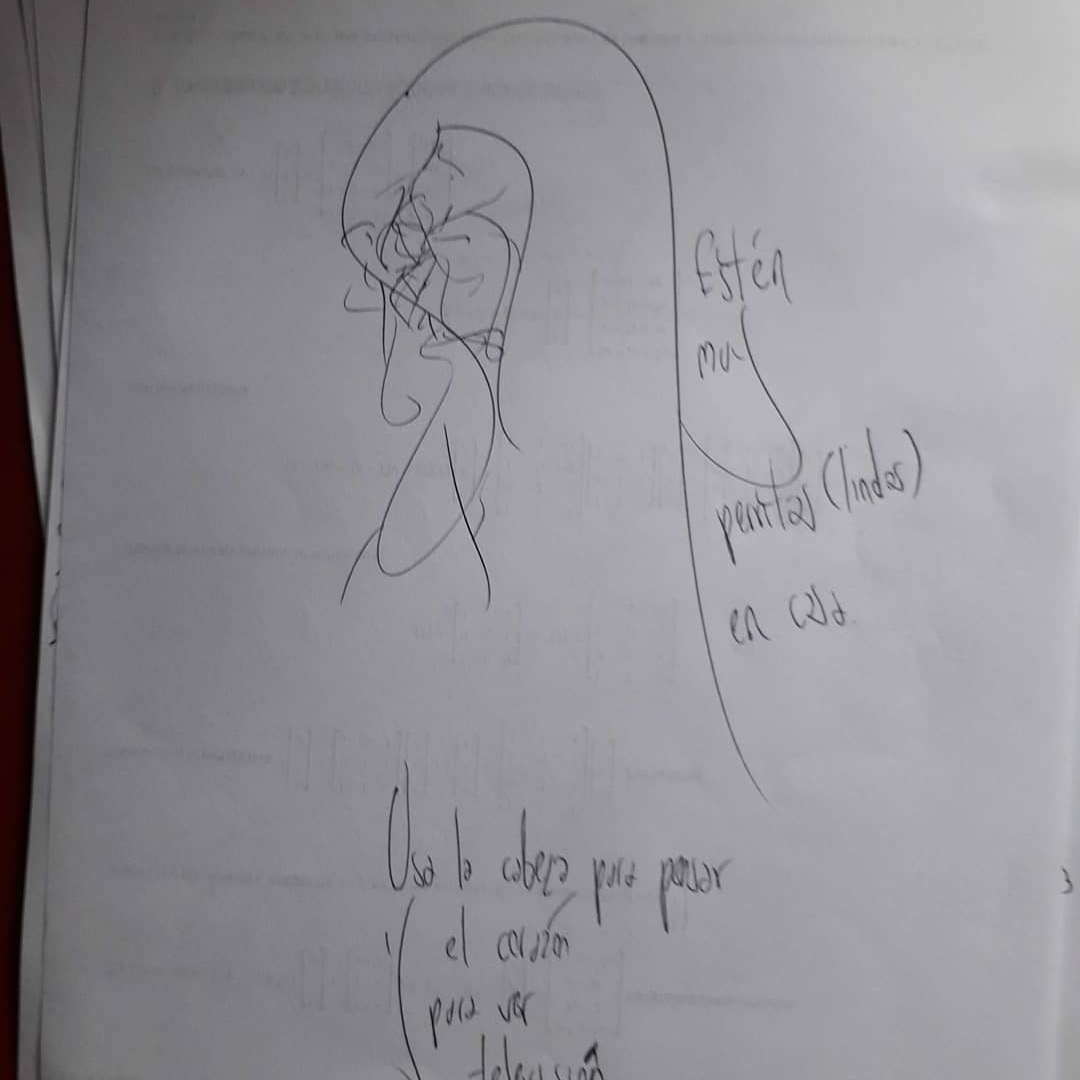 Estén
muy
perritas (lindas)
en casa
Usa la cabeza para pensar
y el corazón
para ver
televisión
3